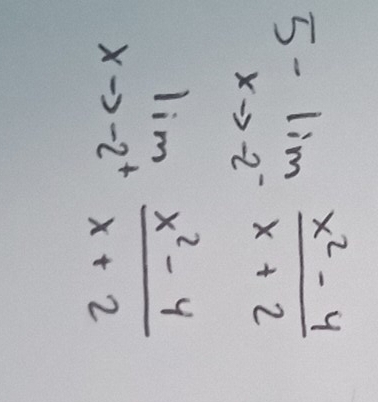 5- lim x²-4
x→-2⁻ x+2
lim x²-4
x→-2⁺ x+2